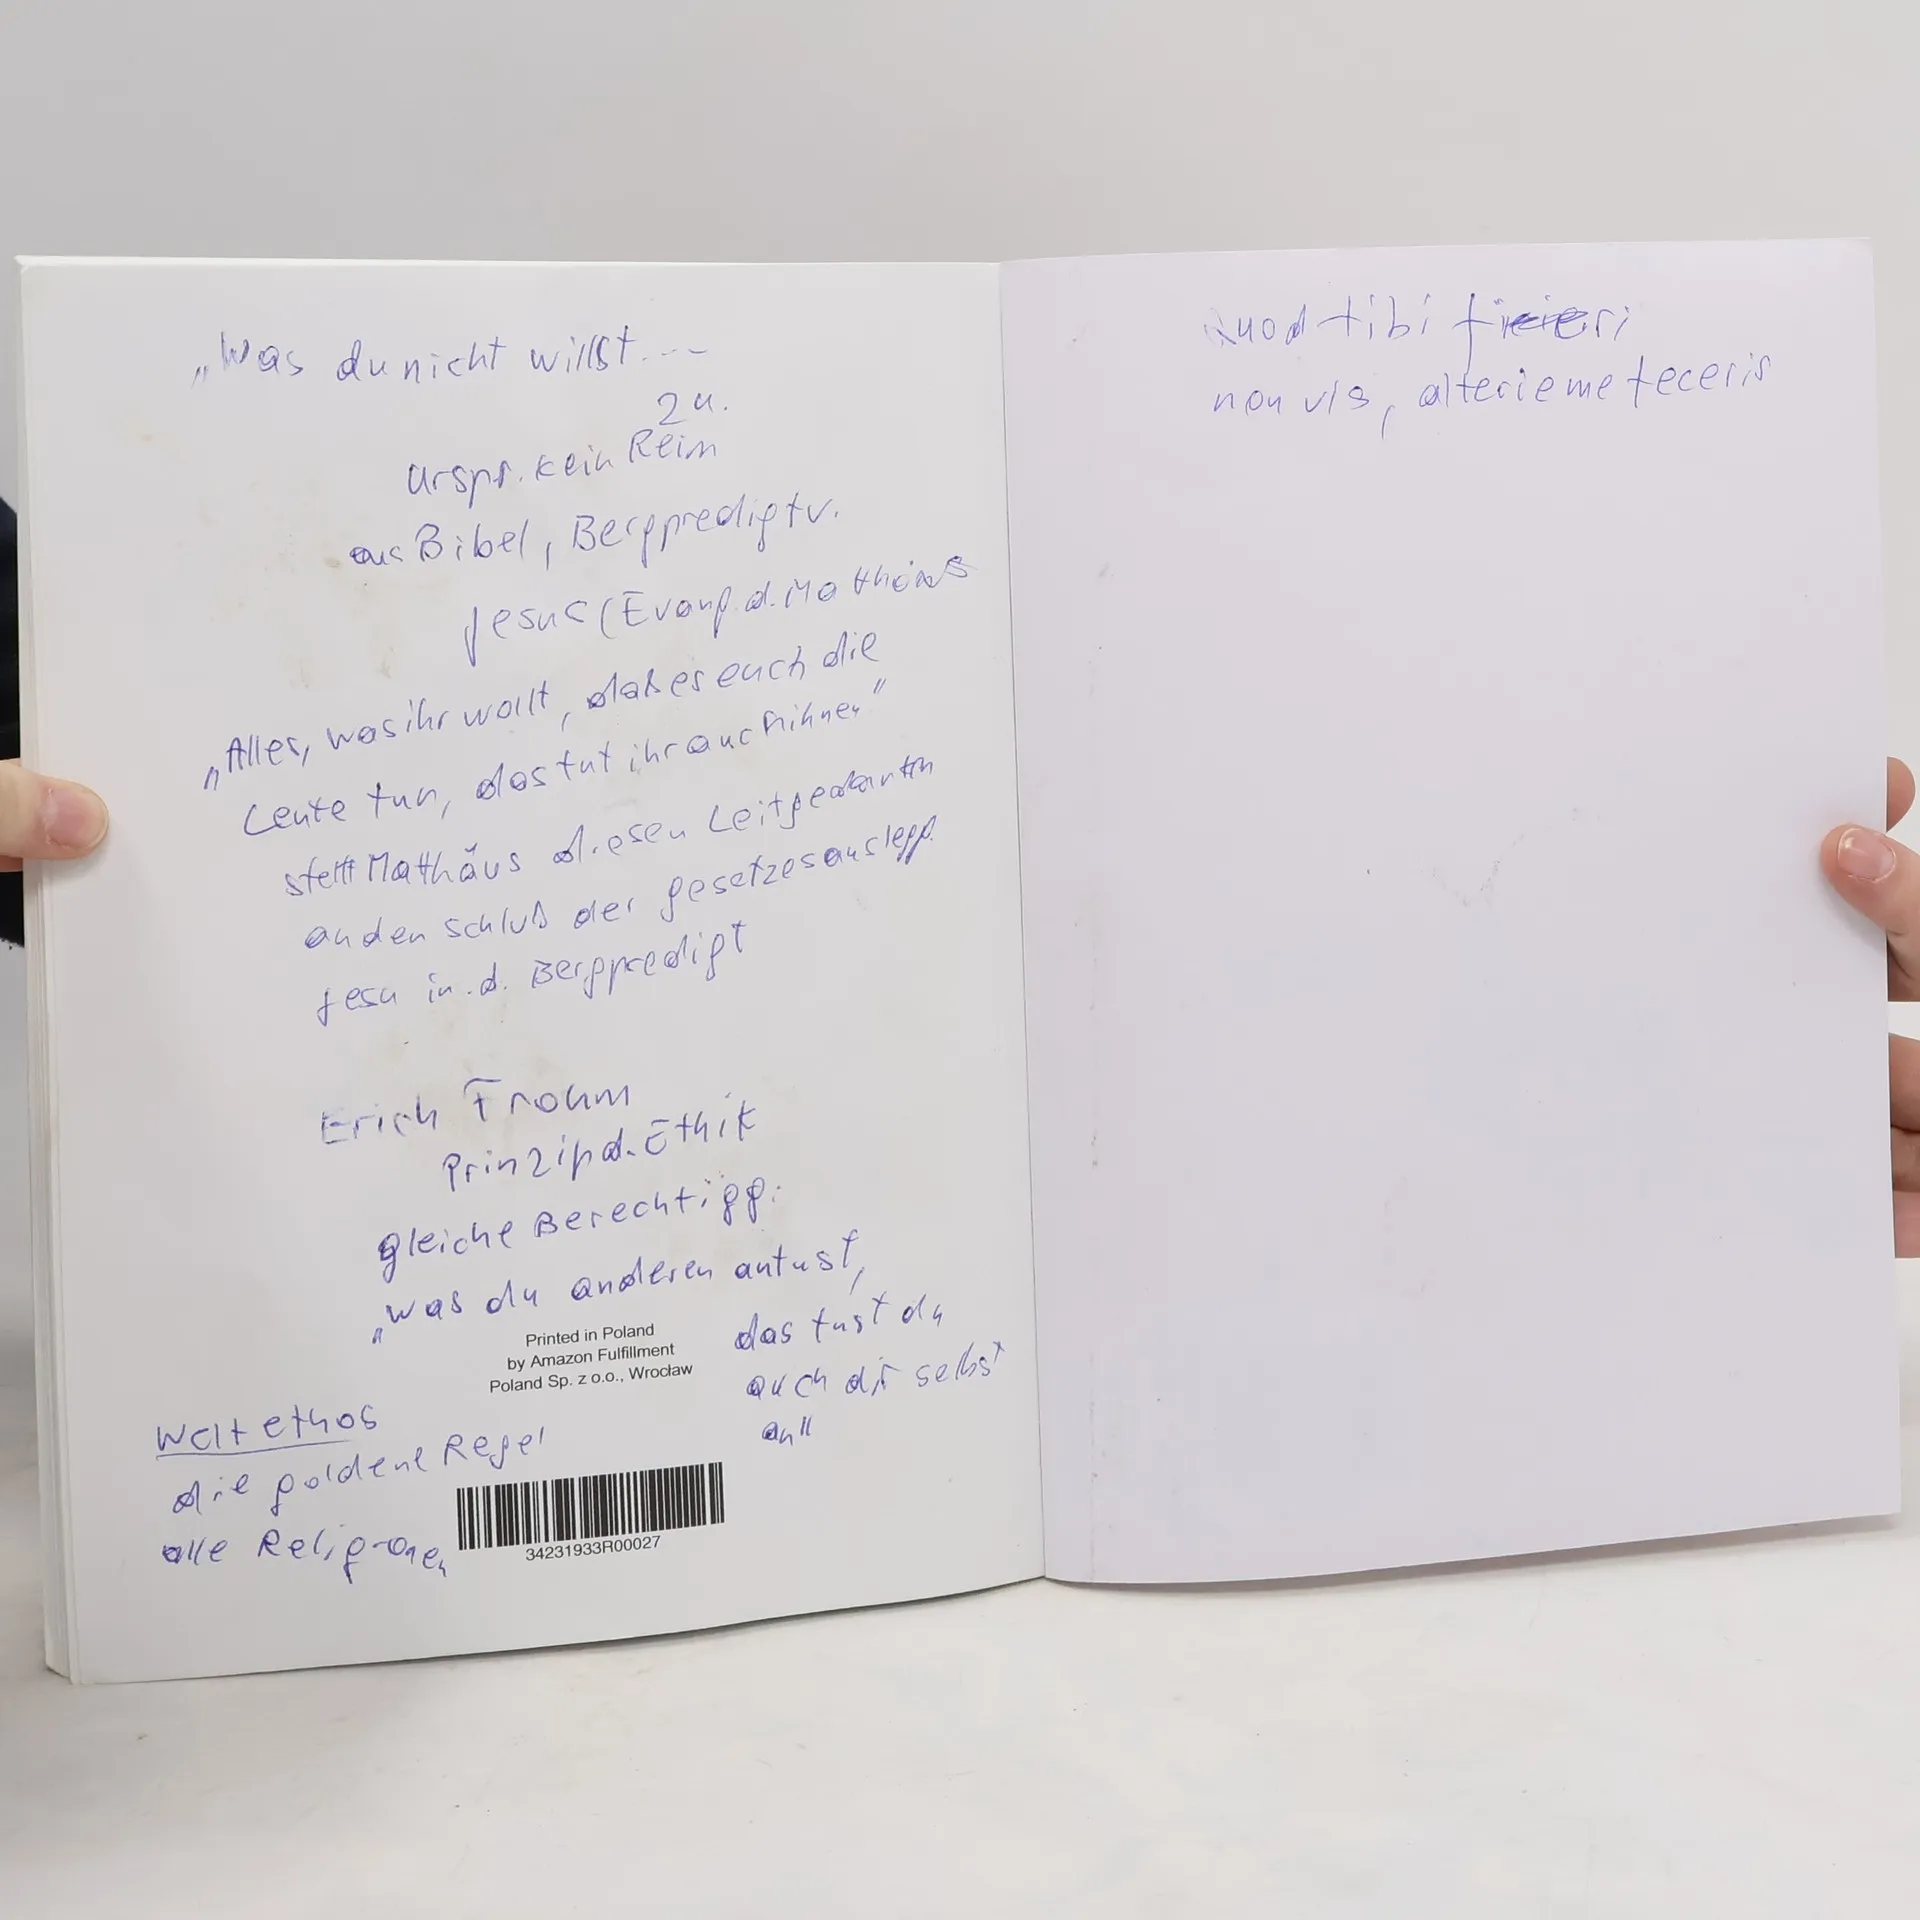 „Was du nicht willst....
2 u.
urspr. kein Reim
aus Bibel, Bergpredigt v.
Jesus (Evang. d. Matthäus
„Alles, was ihr wollt, daß es euch die
Leute tun, das tut ihr auch ihnen"
stellt Matthäus diesen Leitgedanken
an den Schluß der Gesetzesauslegg.
Jesu in d. Bergpredigt
Erich Fromm
Prinzip d. Ethik
gleiche Berechtigg.
„was du anderen antust,
das tust du
auch dir selbst
an"
Printed in Poland
by Amazon Fulfillment
Poland Sp. z o.o., Wrocław
Weltethos
die goldene Regel
alle Religionen
34231933R00027
Quod tibi fieri
non vis, alteri e me feceris